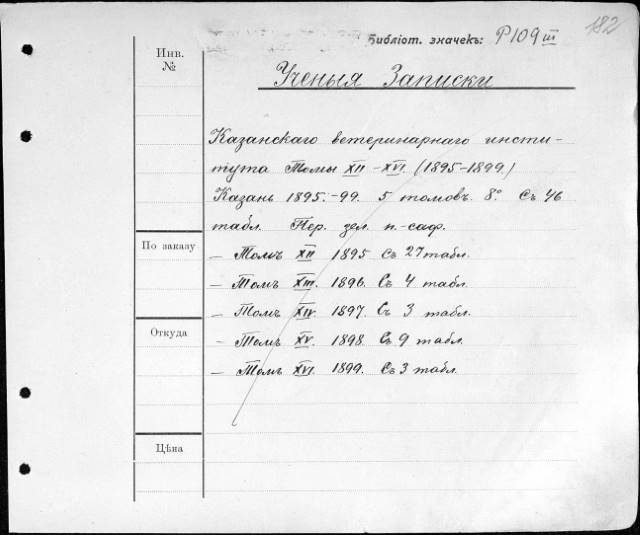 182
Библіот. значекъ: P109 III
Инв.
№
Ученыя Записки
Казанскаго ветеринарнаго инсти-
тута Томы XII - XVI (1895-1899.)
Казань 1895.-99. 5 томовъ. 8° Съ 46
табл. Пер. зел. п.-саф.
По заказу
- Томъ XII 1895 Съ 27 табл.
- Томъ XIII. 1896. Съ 4 табл.
- Томъ XIV. 1897. Съ 3 табл.
Откуда
- Томъ XV. 1898. Съ 9 табл.
- Томъ XVI. 1899. Съ 3 табл.
Цѣна